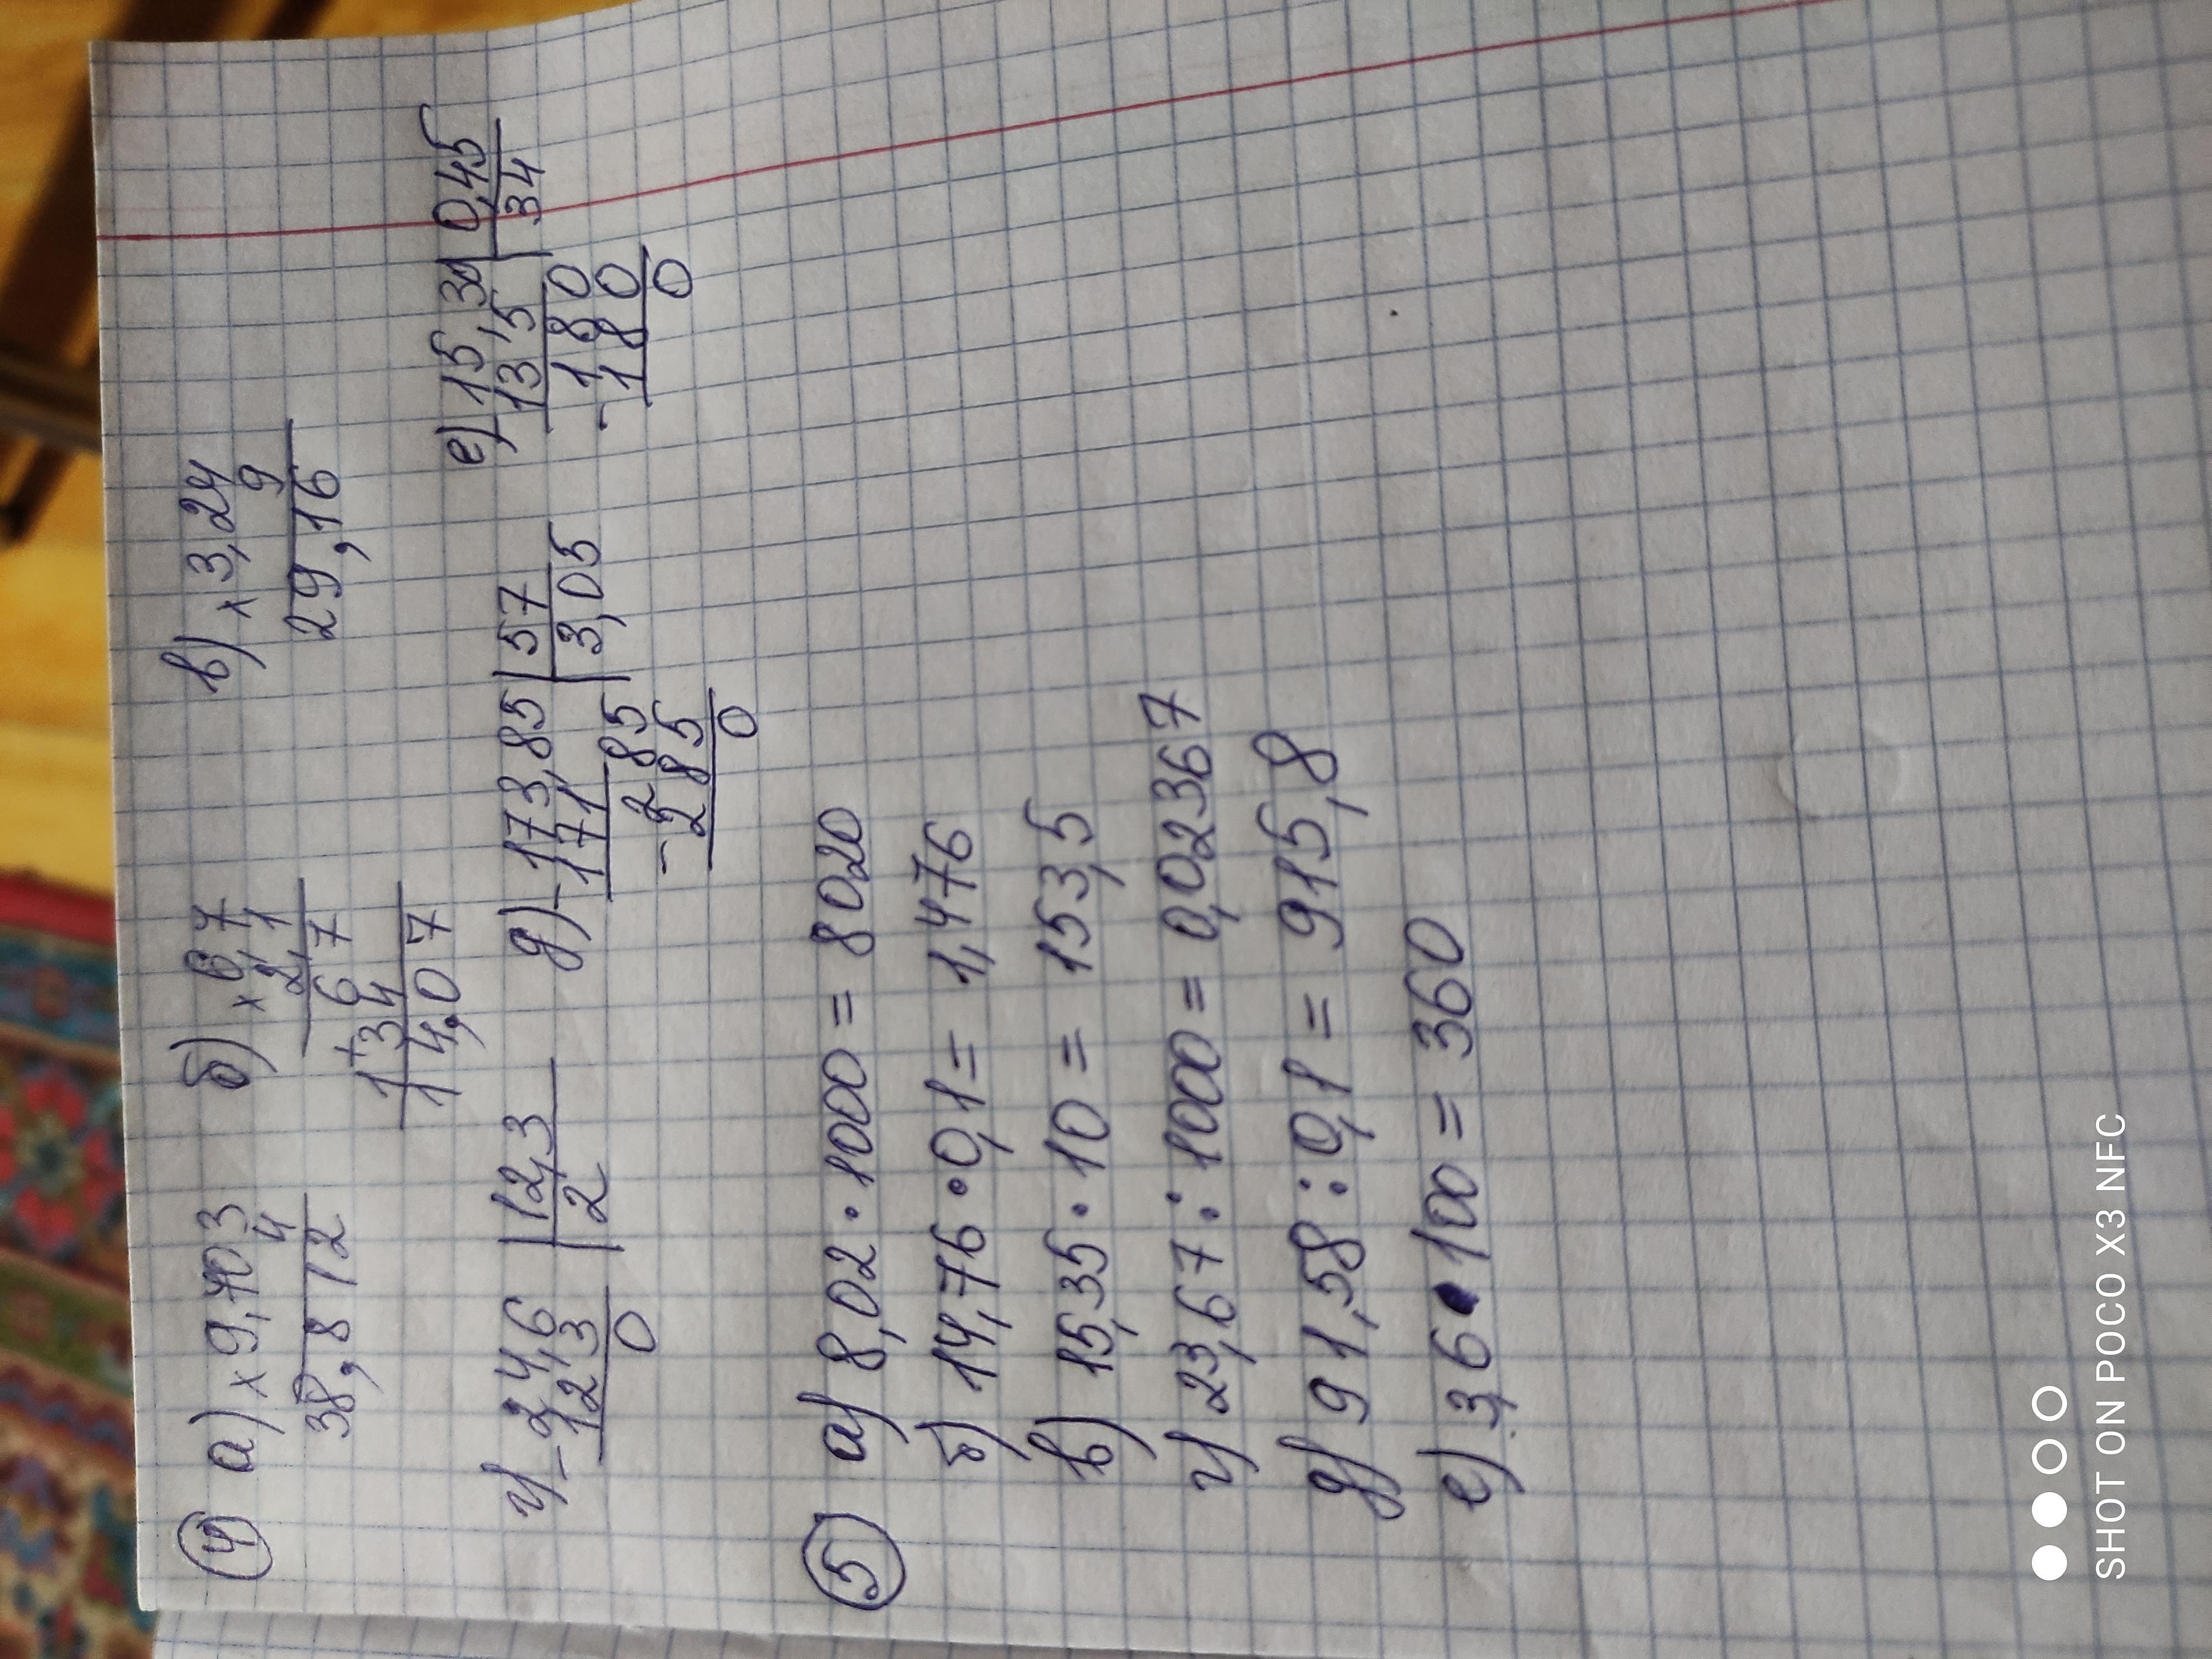 ④ а) × 9,703 б) × 6,7 в) × 3,24
4 2,1 9
38,812 67 29,16
+
134
14,07
г) - 24,6 | 12,3 д) - 173,85 | 57 е) 15,30 | 0,45
123 | 2 171 | 3,05 13,5 | 34
0 - 285 180
285 - 180
0 0
⑤ а) 8,02 · 1000 = 8020
б) 14,76 · 0,1 = 1,476
в) 15,35 · 10 = 153,5
г) 23,67 : 1000 = 0,02367
д) 91,58 : 0,1 = 915,8
е) 3,6 · 100 = 360
SHOT ON POCO X3 NFC